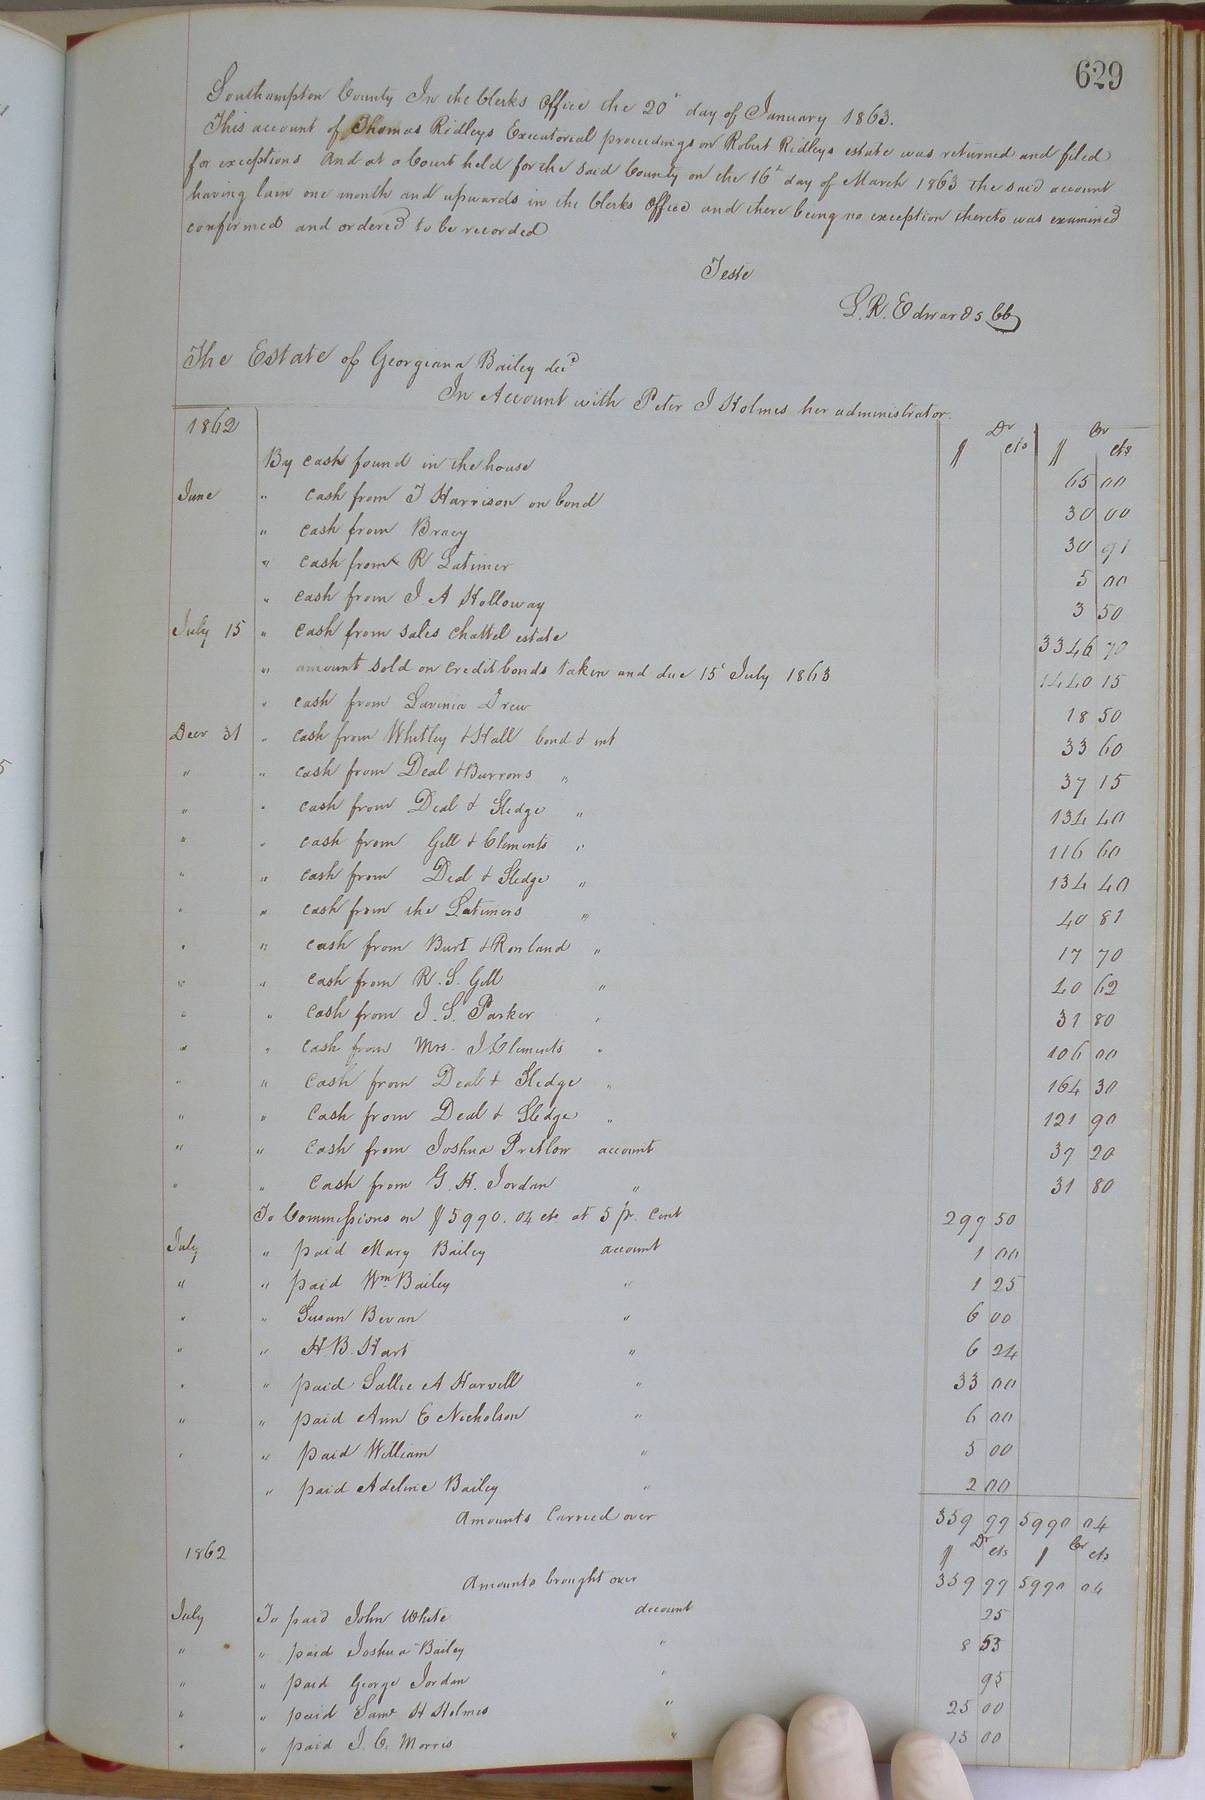 629
Southampton County In the Clerks Office the 20" day of January 1863.
This account of Thomas Ridleys Executorial proceedings on Robert Ridleys estate was returned and filed
for exceptions And at a Court held for the said County on the 16" day of March 1863 the said account
having lain one month and upwards in the Clerks Office and there being no exception thereto was examined
confirmed and ordered to be recorded
Teste
L. R. Edwards CC
The Estate of Georgiana Bailey decd
In Account with Peter J Holmes her administrator.
1862 $ Dr cts $ Cr cts
By cash found in the house 65 00
June " cash from T Harrison on bond 30 00
" cash from Bracy 30 91
" cash from R Latimer 5 00
" cash from J A Holloway 3 50
July 15 " cash from sales chattel estate 3346 70
" amount sold on credit bonds taken and due 15" July 1863 1440 15
" cash from Lavinia Drew 18 50
Decr 31 " cash from Whitley & Hall bond & int 33 60
" " cash from Deal & Burrons " 37 15
" " cash from Deal & Sledge " 134 40
" " cash from Gill & Clements " 116 60
" " cash from Deal & Sledge " 134 40
" " cash from the Latimers " 40 81
" " cash from Burt & Ronland " 17 70
" " cash from R. S. Gill " 40 62
" " cash from J. S. Parker " 31 80
" " cash from Mrs. J Clements " 106 00
" " cash from Deal & Sledge " 164 30
" " cash from Deal & Sledge " 121 90
" " cash from Joshua Pretlow account 37 20
" " cash from G. H. Jordan " 31 80
To Commissions on $5990.04 cts at 5 pr. cent 299 50
July " paid Mary Bailey account 1 00
" " paid Wm Bailey " 1 25
" " Susan Bevan " 6 00
" " H. B. Hart " 6 24
" " paid Sallie A Harvell " 33 00
" " paid Ann E Nicholson " 6 00
" " paid William " 5 00
" " paid Adeline Bailey " 2 00
Amounts Carried over 359 99 5990 04
1862 $ Dr cts $ Cr cts
Amounts brought over 359 99 5990 04
July To paid John White account 25
" " paid Joshua Bailey " 8 53
" " paid George Jordan " 95
" " paid Saml H Holmes " 25 00
" " paid J. C. Morris " 15 00